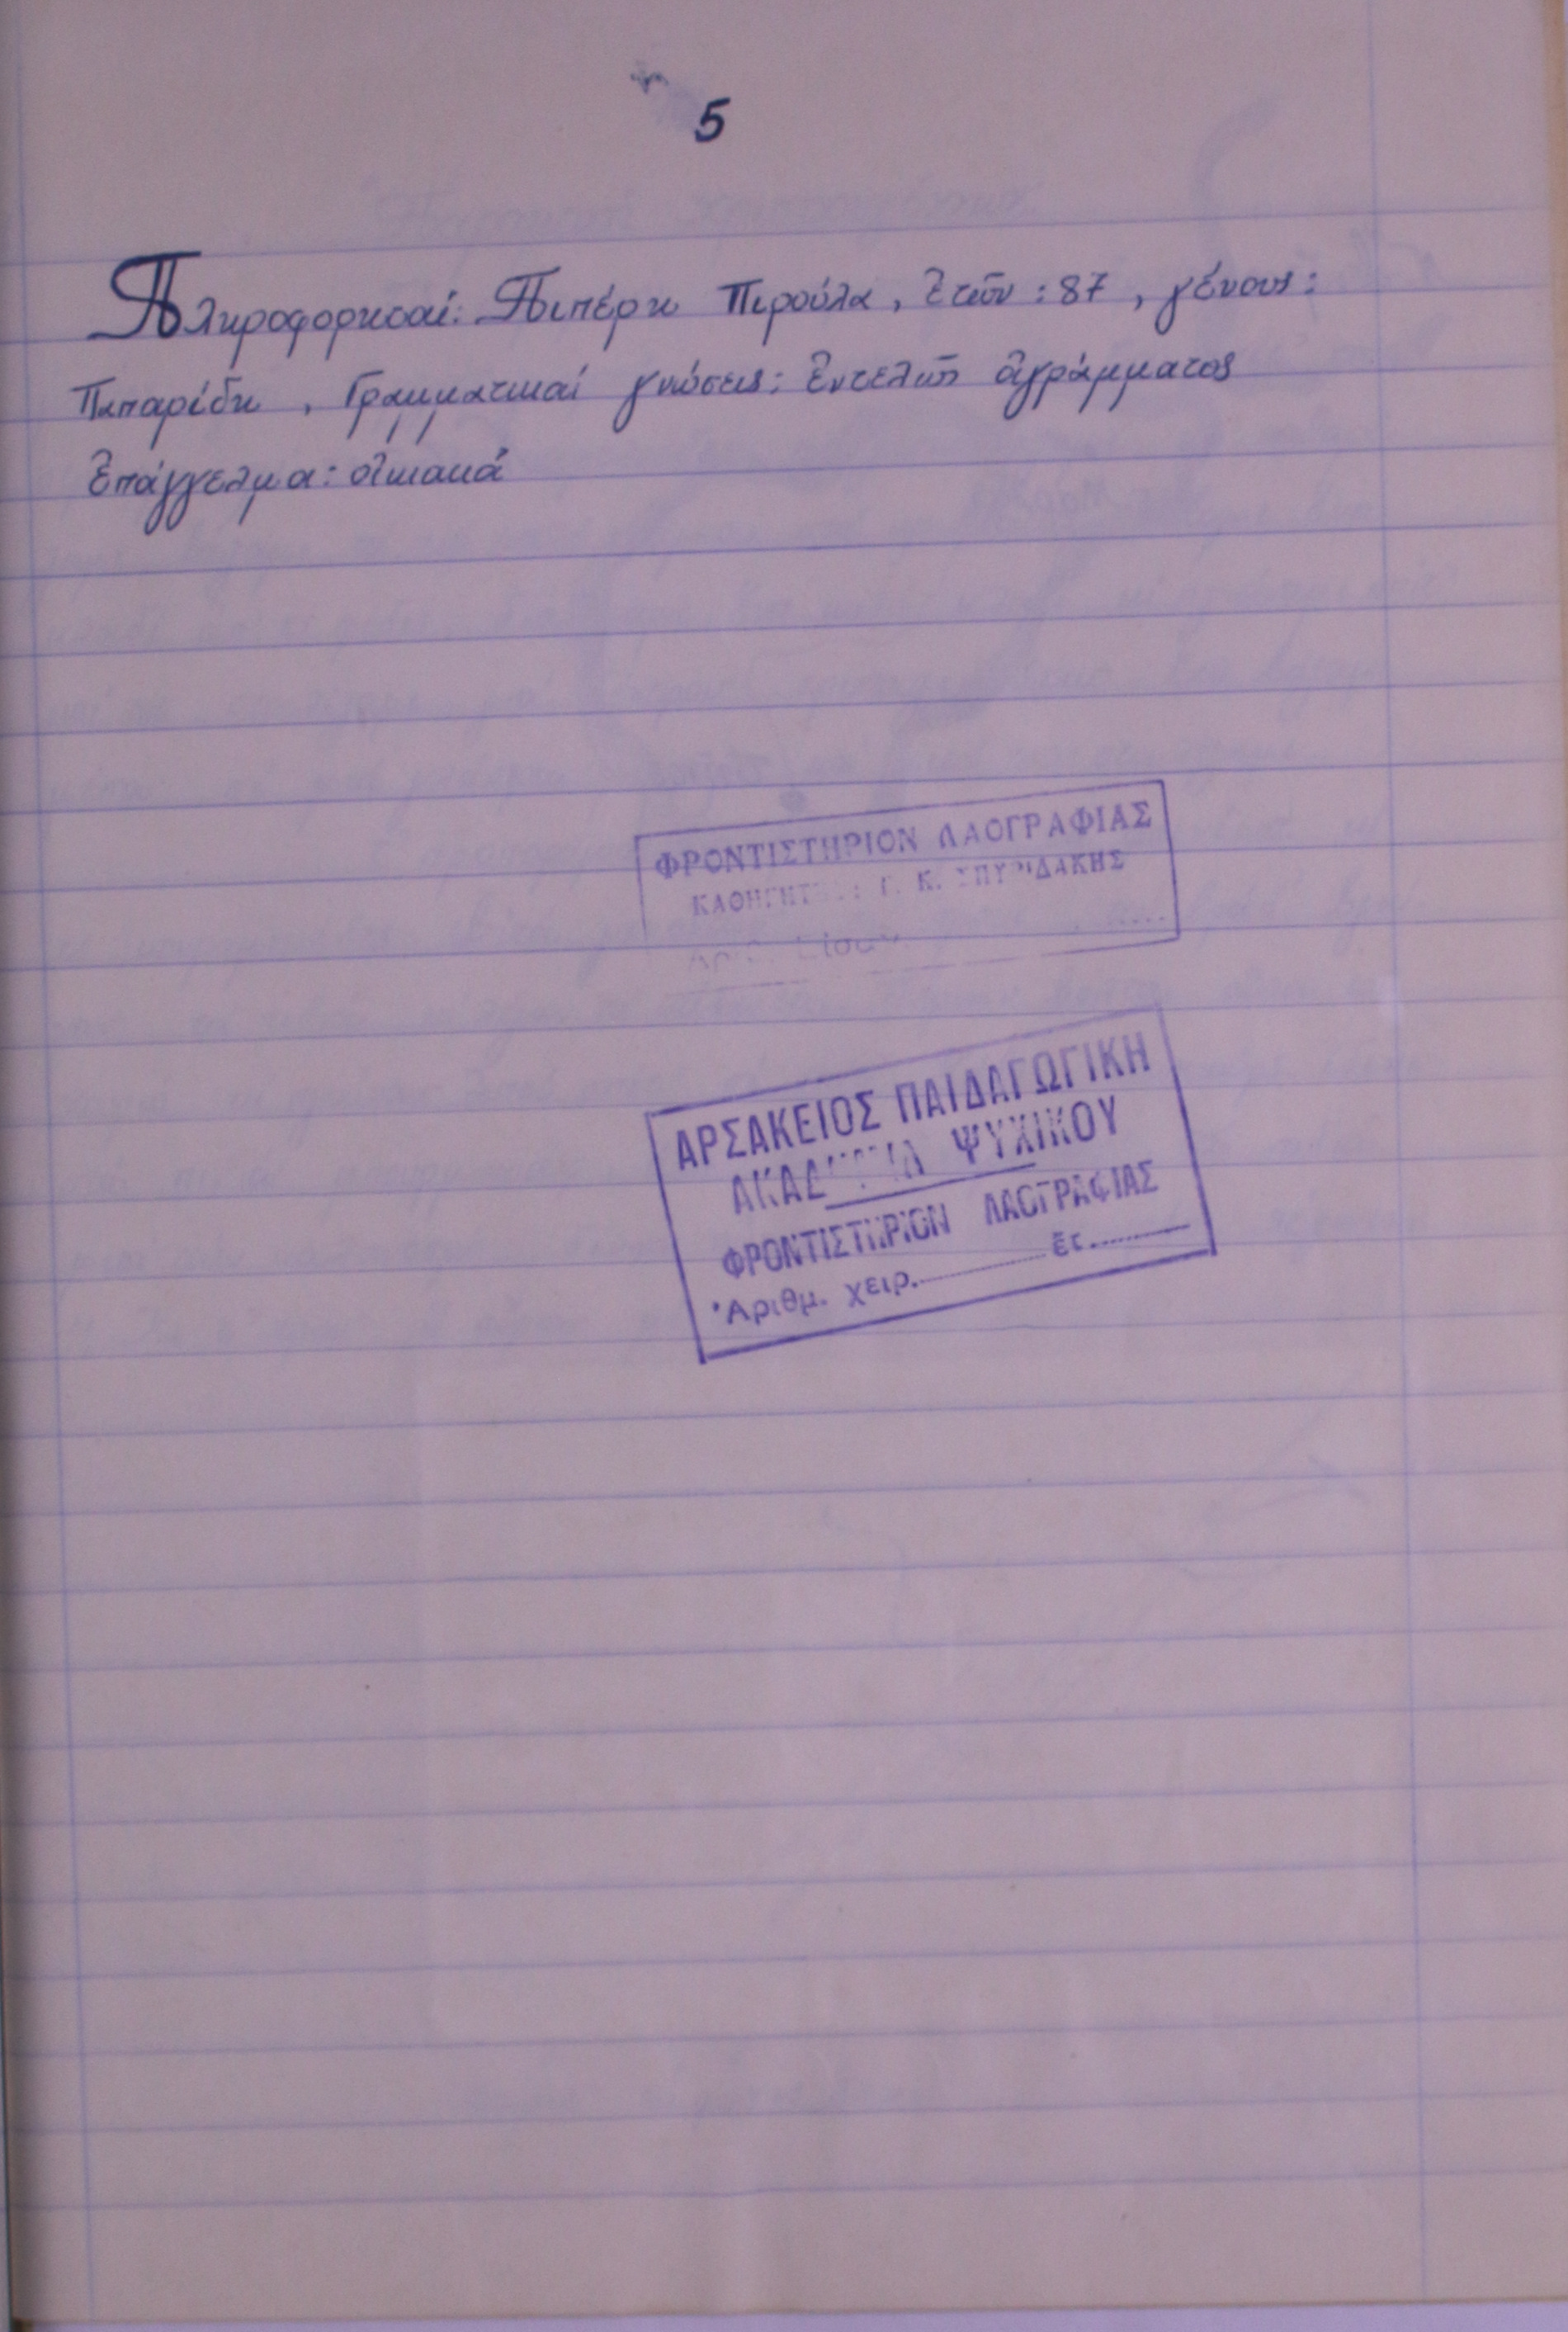 5
Πληροφορηταί: Πιπέρη Πιρούλα, ἐτῶν: 87, γένους:
Πιπαρίδη, Γραμματικαί γνώσεις: ἐντελῶς ἀγράμματος
ἐπάγγελμα: οἰκιακά
ΦΡΟΝΤΙΣΤΗΡΙΟΝ ΛΑΟΓΡΑΦΙΑΣ
Γ. Κ. ΣΠΥΡΙΔΑΚΗΣ
ΑΡΣΑΚΕΙΟΣ ΠΑΙΔΑΓΩΓΙΚΗ
ΑΚΑΔΗΜΙΑ ΨΥΧΙΚΟΥ
ΦΡΟΝΤΙΣΤΗΡΙΟΝ ΛΑΟΓΡΑΦΙΑΣ
Ἀριθμ. χειρ.......... ἔτ..........